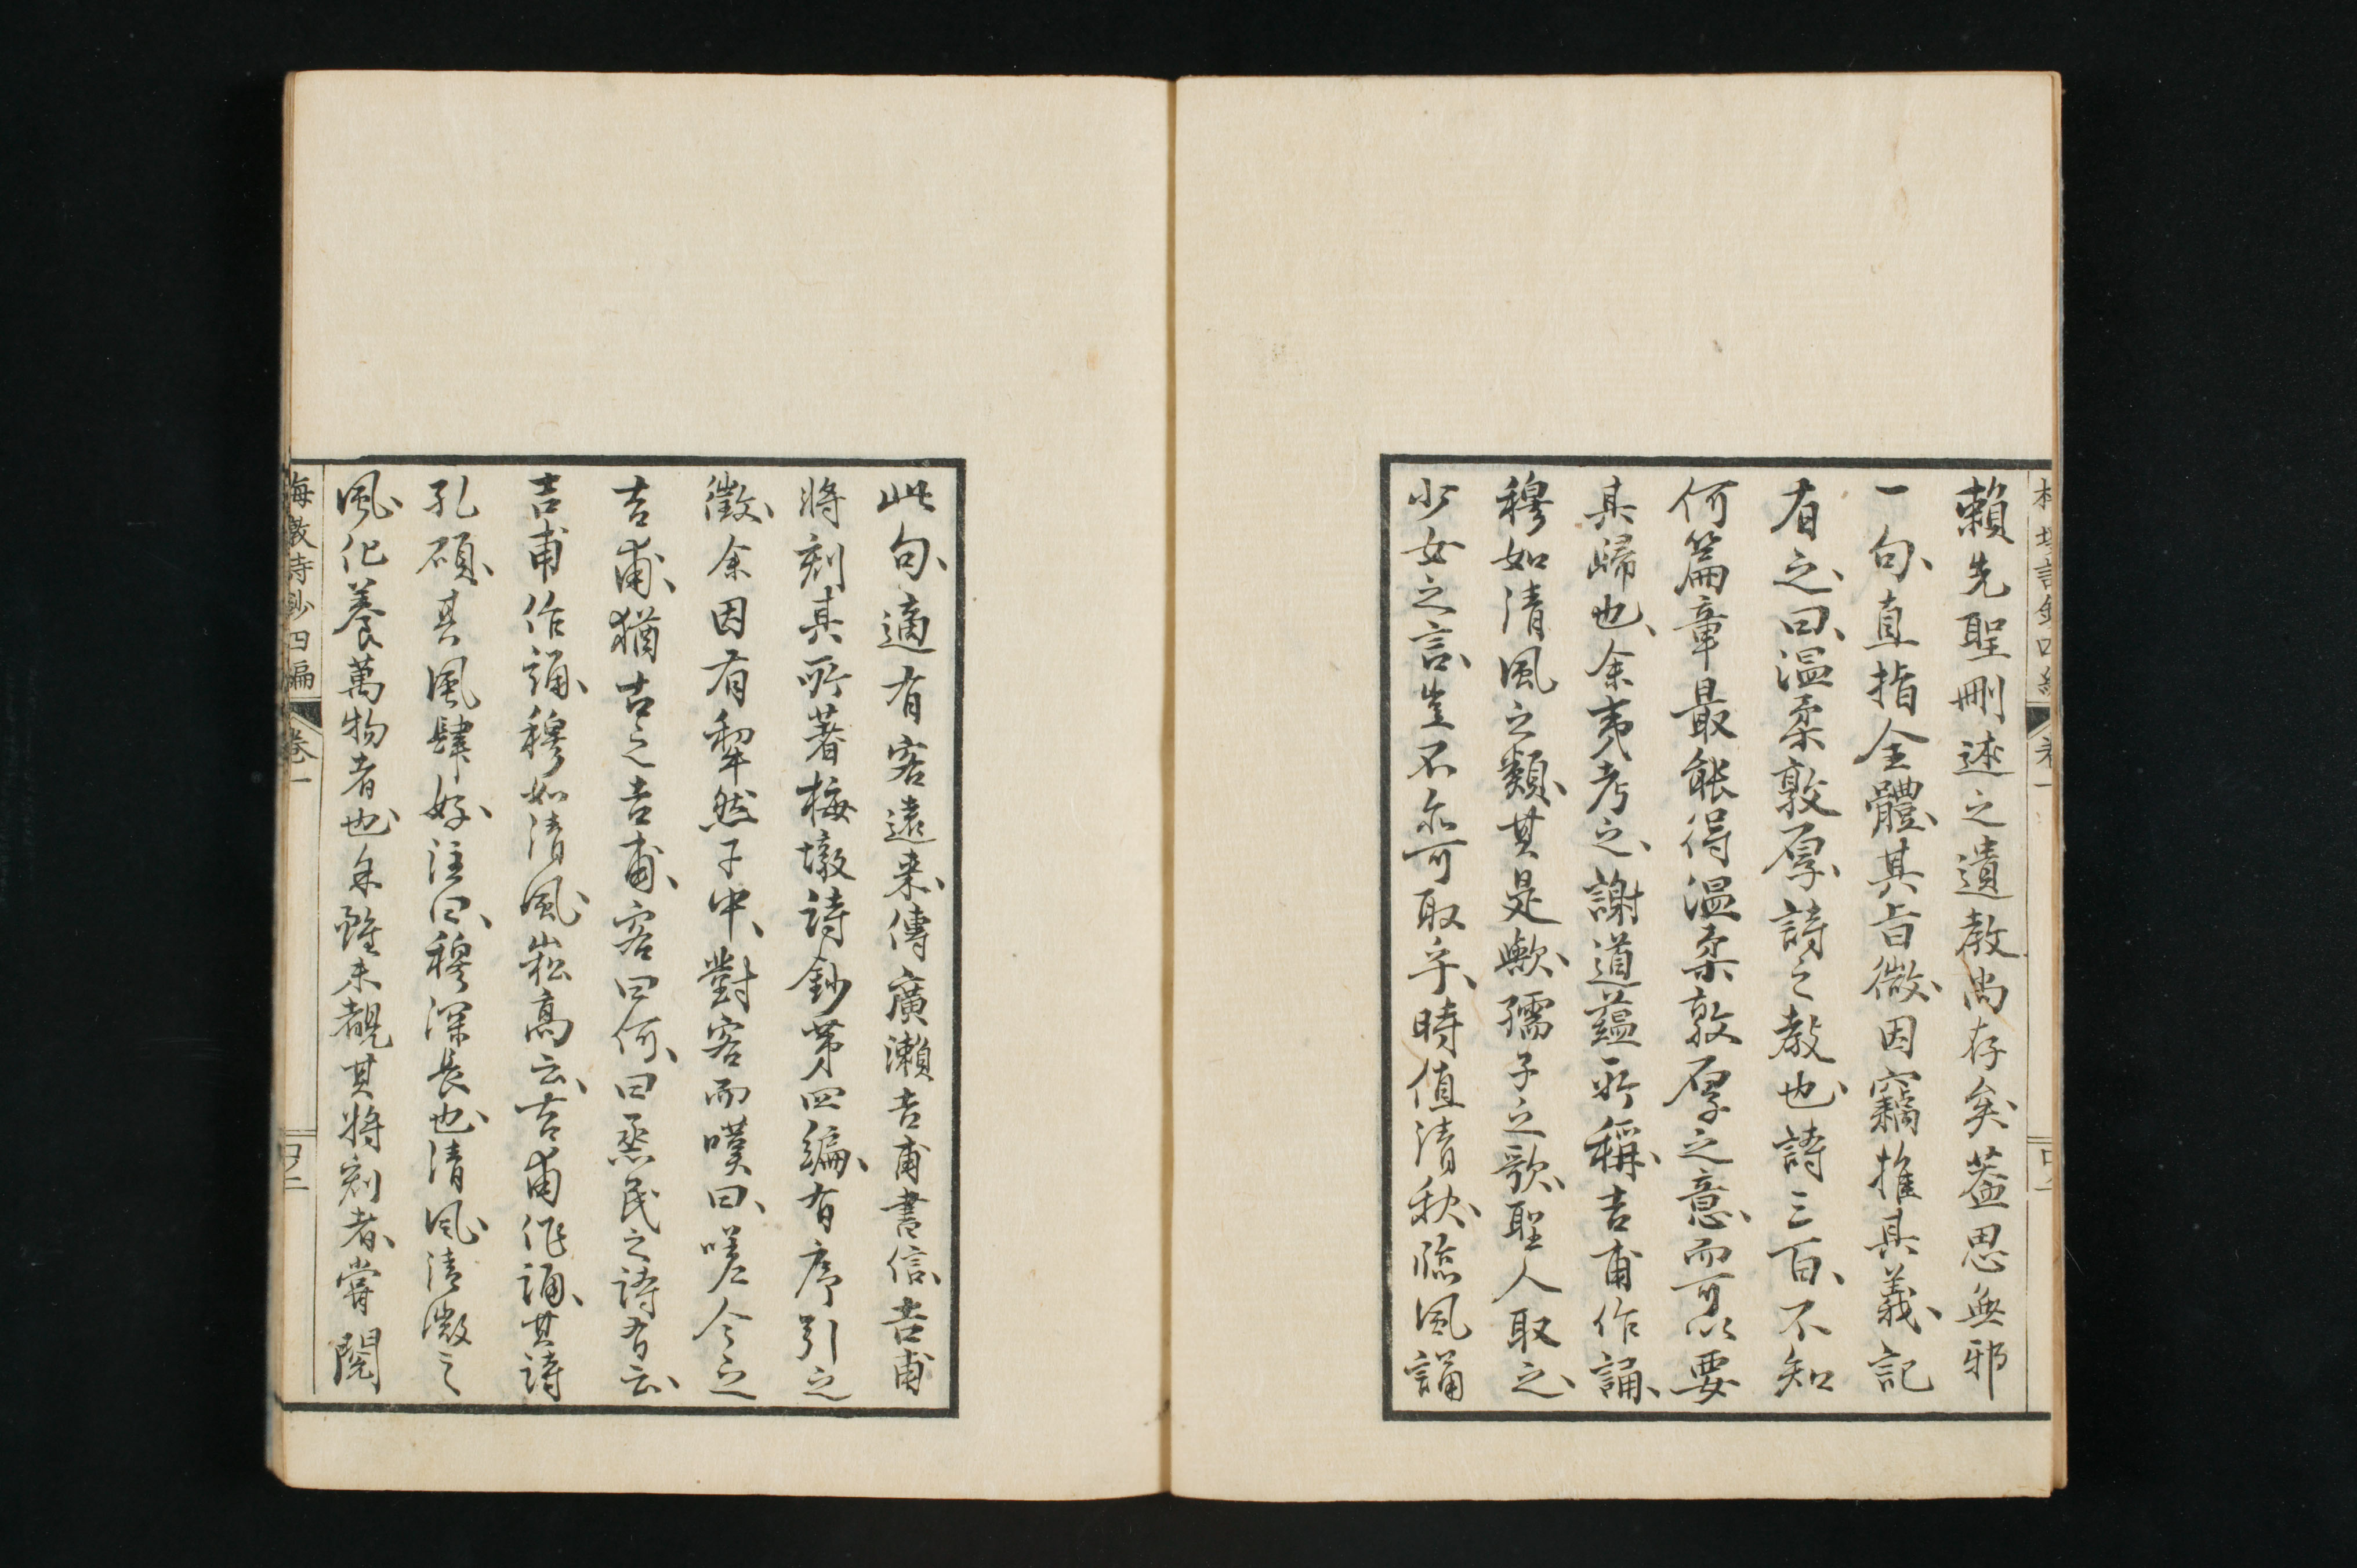 賴先聖刪述之遺教尚存矣蓋思無邪
一句、直指全體、其旨微、因竊推其義、記
有之、曰、温柔敦厚、詩之教也、詩三百、不知
何篇章最能得温柔敦厚之意、而可以要
其歸也、余夷考之、謝道蘊所稱、吉甫作誦、
穆如清風之類、其是歟、孺子之歌、聖人取之、
少女之言、豈不亦可取乎、時值清秋、臨風誦
此句、適有客遠来、傳廣瀨吉甫書信、吉甫
將刻其所著梅墩詩鈔第四編、有序引之
徵、余因有犂然于中、對客而嘆曰、嗟今之
吉甫、猶古之吉甫、客曰何、曰烝民之詩有云、
吉甫作誦、穆如清風、崧高云、吉甫作誦、其詩
孔碩、其風肆好、注曰、穆深長也、清風、清微之
風、化養萬物者也、余雖未覩其將刻者、嘗閱
梅墩詩鈔四編 卷一